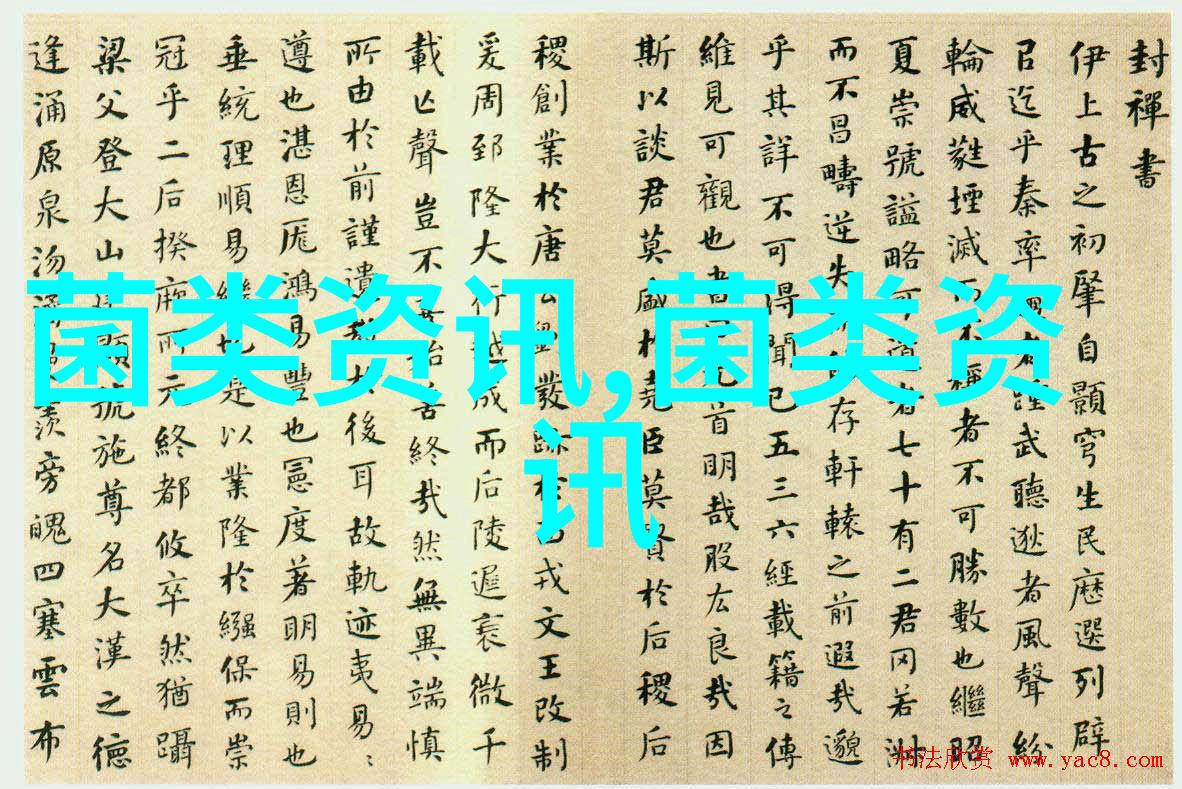 封禪書
伊上古之初肇自顥穹生民歷選列辟
㠯迄乎秦率者踵武聽逖者風聲紛
輪威蕤堙滅而不稱者不可勝數也繼昭
夏崇號謚略可道者七十有二君罔若淑
而不昌疇逆失存軒轅之前遐哉邈
乎其詳不可得聞已五三六經載籍之傳
維見可觀也書元首明哉股厷良哉因
斯以談君莫盛於堯臣莫賢於后稷后
稷創業於唐公劉發跡於西戎文王改制
爰周郅隆大行越成而后陵遲衰微千
載亡聲豈不善始善終哉然無異端慎
所由於前謹遺教於後耳故軌迹夷易〻
遵也湛恩厖鴻易豐也憲度著明易則也
垂統理順易繼也是以業隆於繈保而崇
冠乎二后揆厥所元終都攸卒然猶躡
梁父登大山顯號施尊名大漢之德
逢涌原泉沕潏羨旁魄四塞雲布
菌类资讯,菌类资
讯
书法欣赏 www.yac8.com